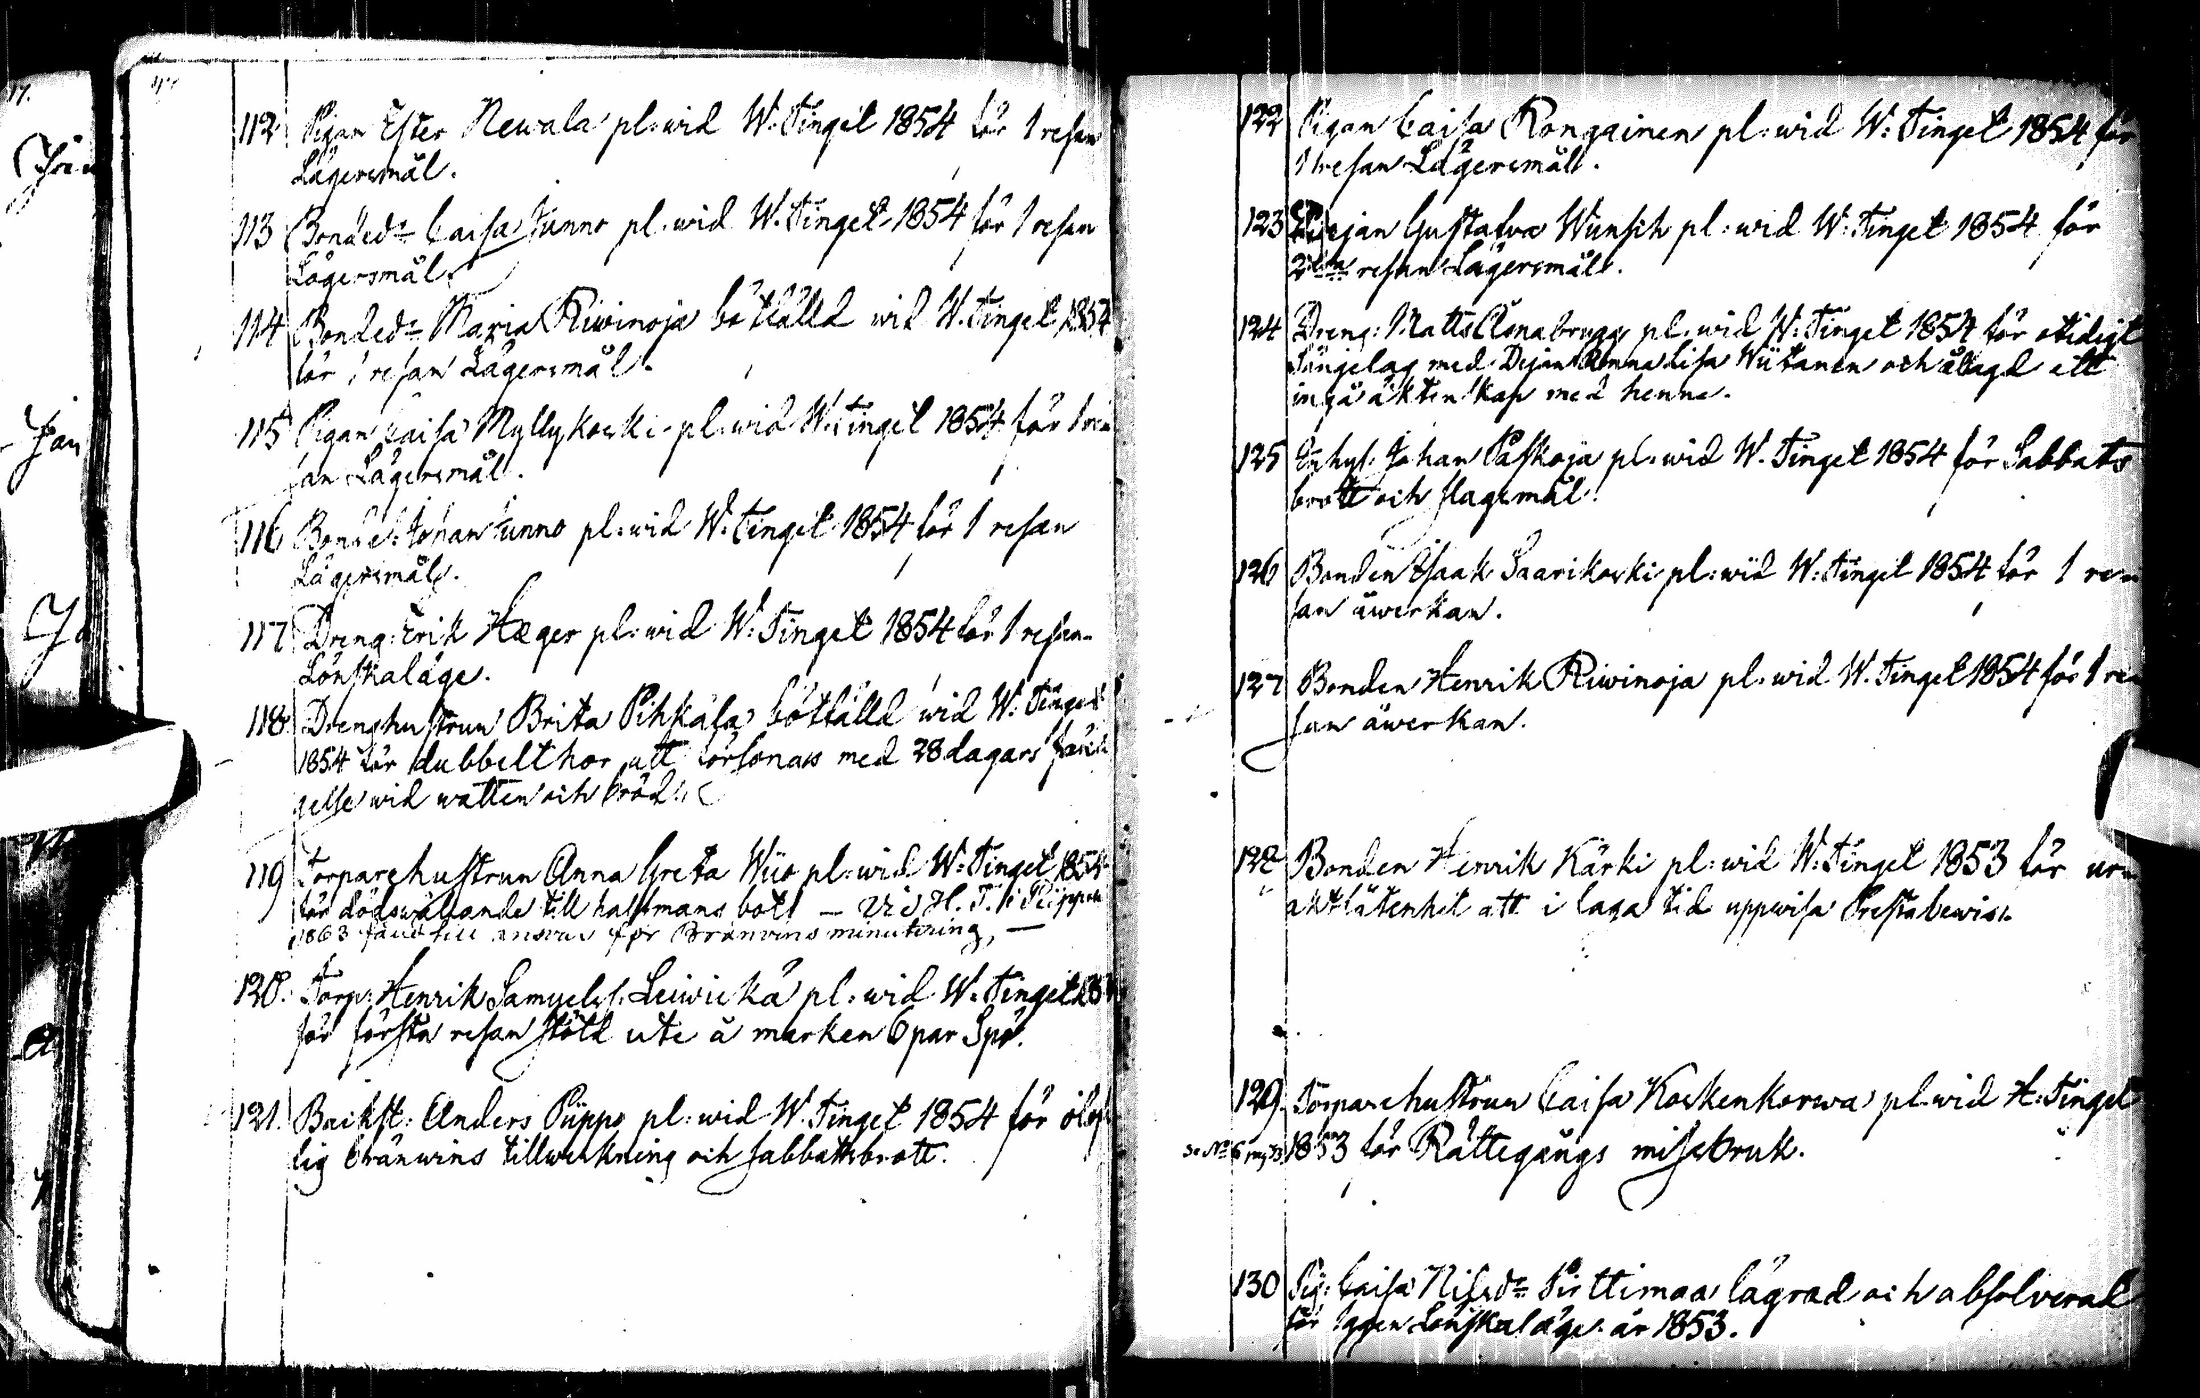 112 Pigan Ester Newala pl: wid W. Tinget 1854 för 1 resan
Lägersmål.
113 Bonded:r Caisa Junno pl. wid W. Tinget 1854 för 1 resan
Lägersmål.
114 Bonded:r Maria Riwinoja bötfälld wid W. Tinget 1854
för 1 resan Lägersmål.
115 Pigan Caisa Myllykoski pl. wid W. Tinget 1854 för 1 re-
san Lägersmål.
116 Bondes: Johan Junno pl: wid W: Tinget 1854 för 1 resan
Lägersmål.
117 Dreng: Erik Hæger pl: wid W: Tinget 1854 för 1 resan
Lönskaläge.
118 Drenghustrun Brita Pihkala bötfälld wid W. Tinget
1854 för dubbelt hor att försonas med 28 dagars fän-
gelse wid watten och bröd.
119 Torparehustrun Anna Greta Wiio pl: wid W: Tinget 1854
för dödswållande till half mans bot — Vid H. T. Piippon
1863 till ansvar för Bränvins minutering, —
120. Torp: Henrik Samuels. Leiwiskä pl: wid W. Tinget
för första resan stöld ute å marken 6 par Spö.
121. Backst: Anders Piippo pl: wid W. Tinget 1854 för olof-
lig bränwins tillwerkning och sabbattsbrott.
122 Pigan Caisa Rongainen pl: wid W: Tinget 1854 för
1 resan Lägersmål.
123 Pigan Gustafva Wunsch pl: wid W: Tinget 1854 för
2:dra resan Lägersmål.
124 Dreng: Matts Åsnabrygg pl. wid W: Tinget 1854 för otidigt
Sängelag med Pigan Anna Lisa Wiitanen och ålagd att
ingå äktenskap med henne.
125 Inhys: Johan Paskoja pl: wid W. Tinget 1854 för Sabbats
brott och slagsmål.
126 Bonden Isaak Saarikoski pl: wid W: Tinget 1854 för 1 re-
san åwerkan.
127 Bonden Henrik Riwinoja pl. wid W. Tinget 1854 för 1 re-
san åwerkan.
128 Bonden Henrik Kärki pl: wid W: Tinget 1853 för urac-
aktlåtenhet att i laga tid uppwisa Prestabewis.
129. Torparehustrun Caisa Koskenkorwa pl. wid H: Tinget
1853 för Rättegångs missbruk.
130 Pig: Caisa Nilsd:r Pirttimaa lägrad och absolverad
för 1 ggen Lönskaläge år 1853.